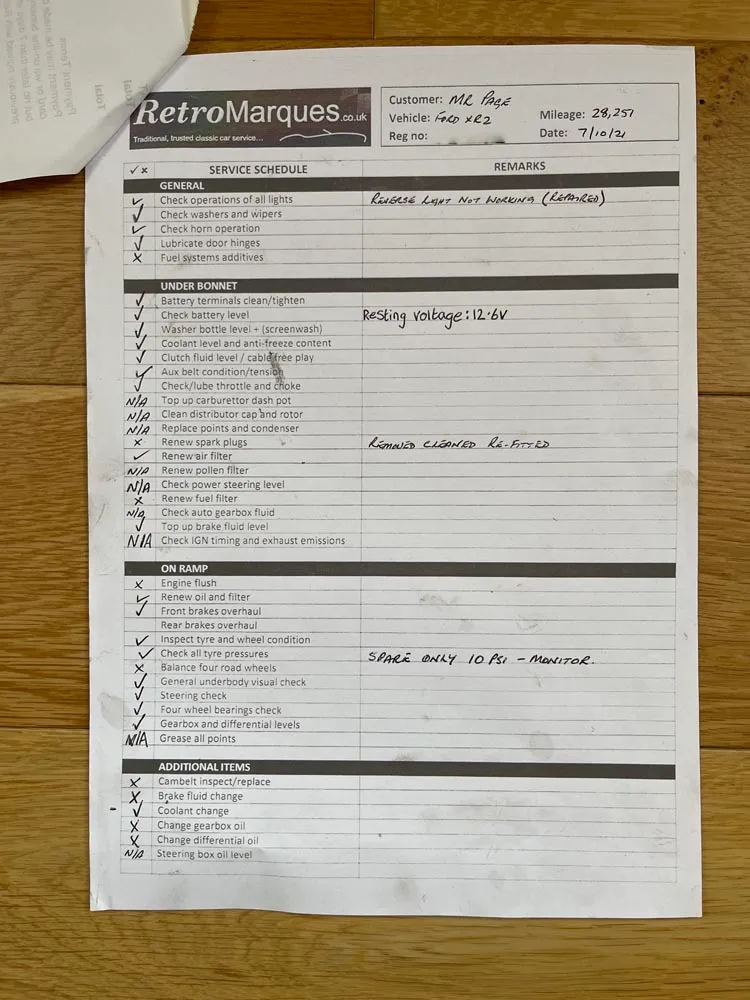 RetroMarques.co.uk
Traditional, trusted classic car service...
Customer: MR PAGE
Vehicle: FORD XR2
Mileage: 28,251
Reg no:
Date: 7/10/21
✓ x SERVICE SCHEDULE REMARKS
GENERAL
✓ Check operations of all lights REVERSE LIGHT NOT WORKING (REPAIRED)
✓ Check washers and wipers
✓ Check horn operation
✓ Lubricate door hinges
x Fuel systems additives
UNDER BONNET
✓ Battery terminals clean/tighten
✓ Check battery level Resting voltage: 12.6V
✓ Washer bottle level + (screenwash)
✓ Coolant level and anti-freeze content
✓ Clutch fluid level / cable free play
✓ Aux belt condition/tension
✓ Check/lube throttle and choke
N/A Top up carburettor dash pot
N/A Clean distributor cap and rotor
N/A Replace points and condenser
x Renew spark plugs REMOVED CLEANED RE-FITTED
✓ Renew air filter
N/A Renew pollen filter
N/A Check power steering level
x Renew fuel filter
N/A Check auto gearbox fluid
✓ Top up brake fluid level
N/A Check IGN timing and exhaust emissions
ON RAMP
x Engine flush
✓ Renew oil and filter
✓ Front brakes overhaul
Rear brakes overhaul
✓ Inspect tyre and wheel condition
✓ Check all tyre pressures SPARE ONLY 10 PSI - MONITOR.
x Balance four road wheels
✓ General underbody visual check
✓ Steering check
✓ Four wheel bearings check
✓ Gearbox and differential levels
N/A Grease all points
ADDITIONAL ITEMS
x Cambelt inspect/replace
x Brake fluid change
- ✓ Coolant change
x Change gearbox oil
x Change differential oil
N/A Steering box oil level